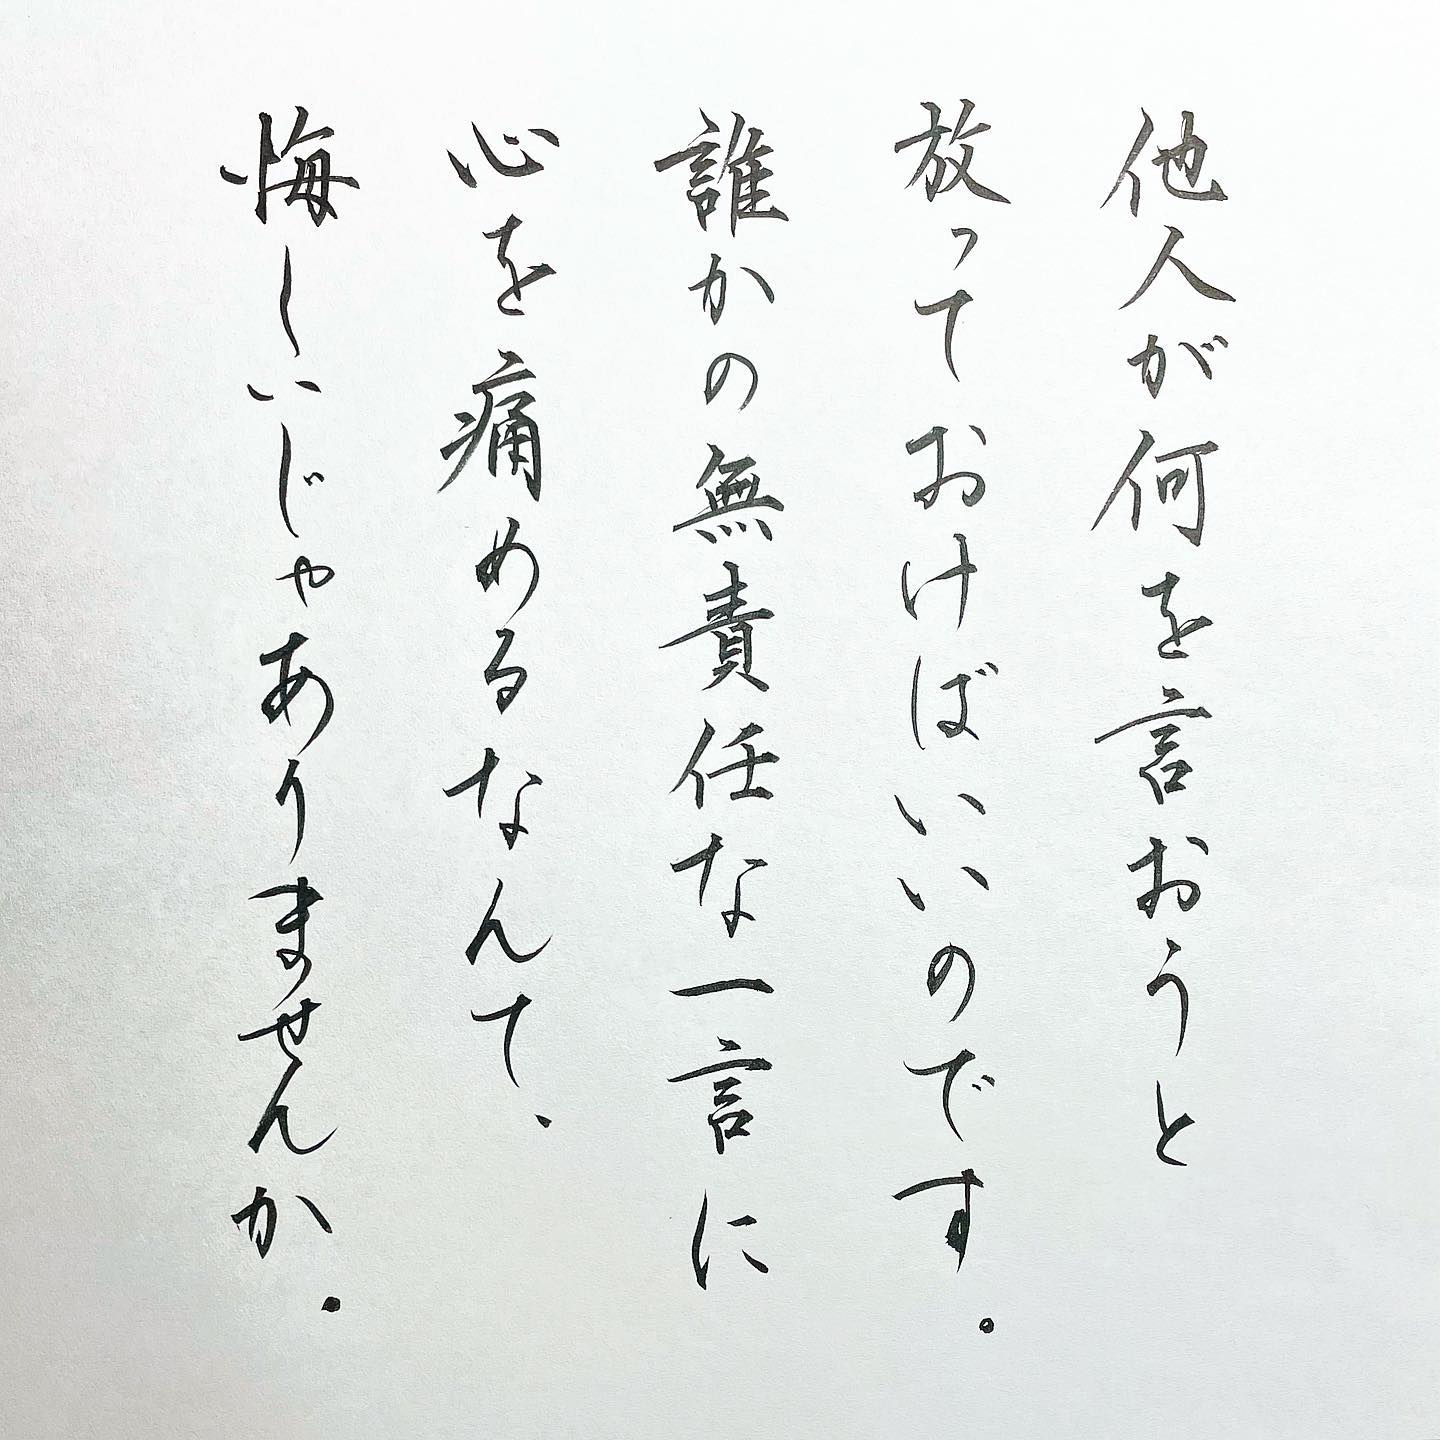 他人が何を言おうと
放っておけばいいのです。
誰かの無責任な一言に
心を痛めるなんて、
悔しいじゃありませんか。